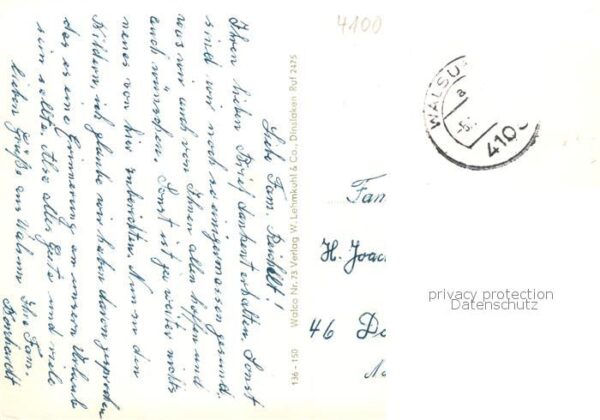 4100
WALSU
a
4100
Liebe Fam. Reichelt!
Ihren lieben Brief dankend erhalten. Sonst
sind wir noch so einigermassen gesund,
was wir auch von Ihnen allen hoffen und
auch wünschen. Sonst ist ja weiter nichts
neues von hier zu berichten. Nun zu den
Bildern, ich glaube wir haben davon gesprochen
das es eine Erinnerung an unseren Urlaub
sein sollte. Also alles Gute und viele
lieben Grüße aus Walsum Ihre Fam.
136 - 150 Walco Nr. 73 Verlag W. Lehmkuhl & Co., Dinslaken Ruf 2475
Fam
H. Joac
46 Do
privacy protection
Datenschutz